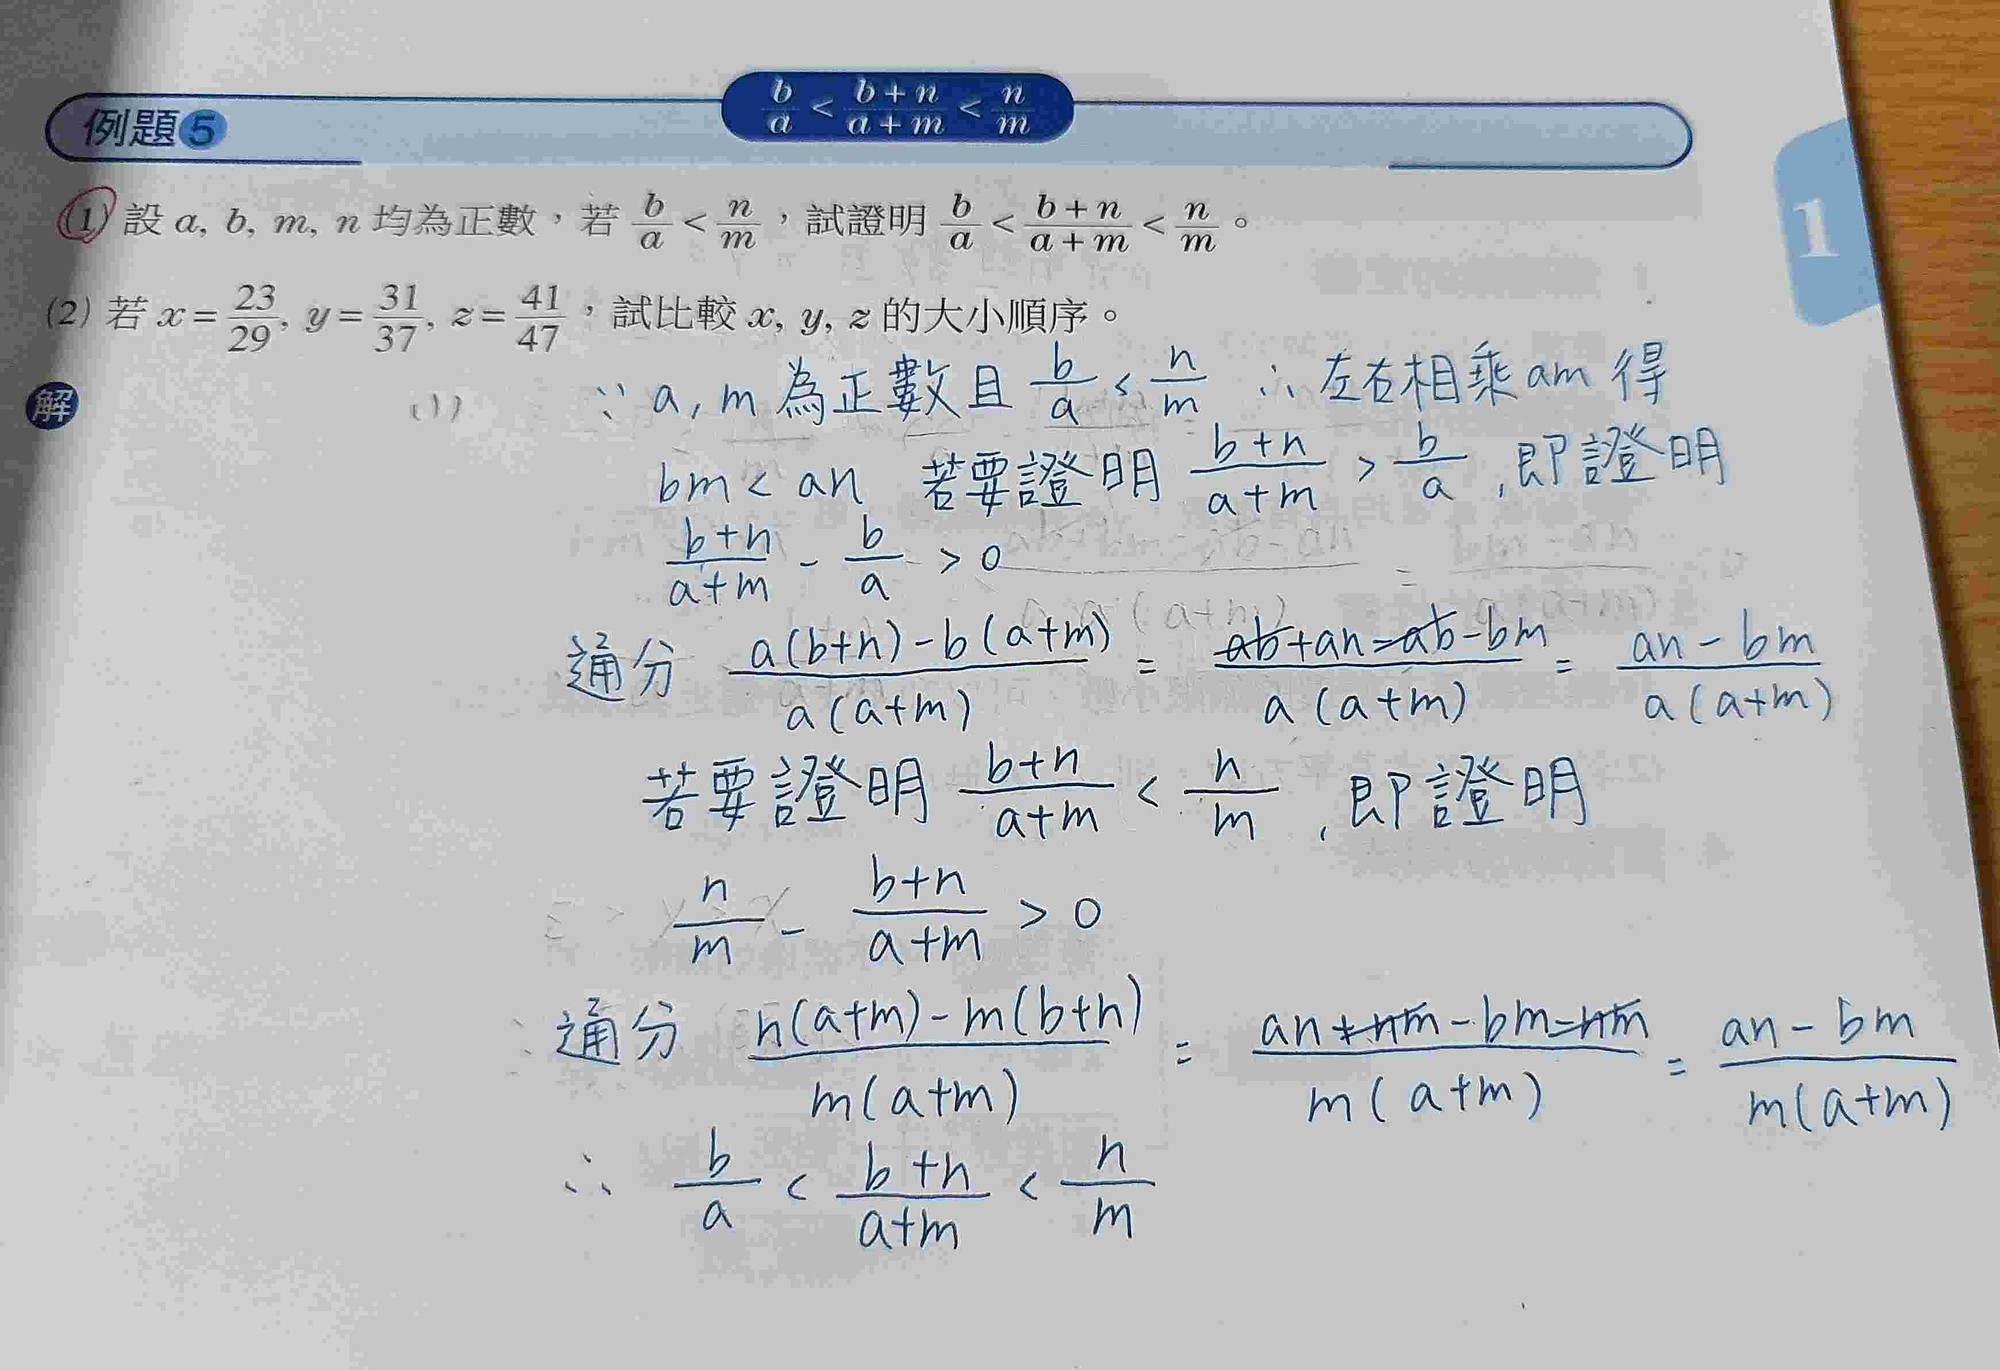 $\frac{b}{a} < \frac{b+n}{a+m} < \frac{n}{m}$
例題 5
(1) 設 a, b, m, n 均為正數，若 $\frac{b}{a} < \frac{n}{m}$，試證明 $\frac{b}{a} < \frac{b+n}{a+m} < \frac{n}{m}$。
1
(2) 若 $x = \frac{23}{29}$, $y = \frac{31}{37}$, $z = \frac{41}{47}$，試比較 x, y, z 的大小順序。
解
(1) ∵ a, m 為正數且 $\frac{b}{a} < \frac{n}{m}$ ∴ 左右相乘 am 得
bm < an 若要證明 $\frac{b+n}{a+m} > \frac{b}{a}$, 即證明
$\frac{b+n}{a+m} - \frac{b}{a} > 0$
通分 $\frac{a(b+n)-b(a+m)}{a(a+m)} = \frac{ab+an-ab-bm}{a(a+m)} = \frac{an-bm}{a(a+m)}$
若要證明 $\frac{b+n}{a+m} < \frac{n}{m}$, 即證明
$\frac{n}{m} - \frac{b+n}{a+m} > 0$
通分 $\frac{n(a+m)-m(b+n)}{m(a+m)} = \frac{an+nm-bm-nm}{m(a+m)} = \frac{an-bm}{m(a+m)}$
∴ $\frac{b}{a} < \frac{b+n}{a+m} < \frac{n}{m}$